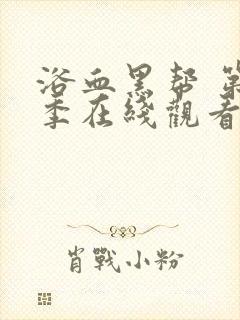 浴血黑帮 第
季在綫觀看
肖戰小粉